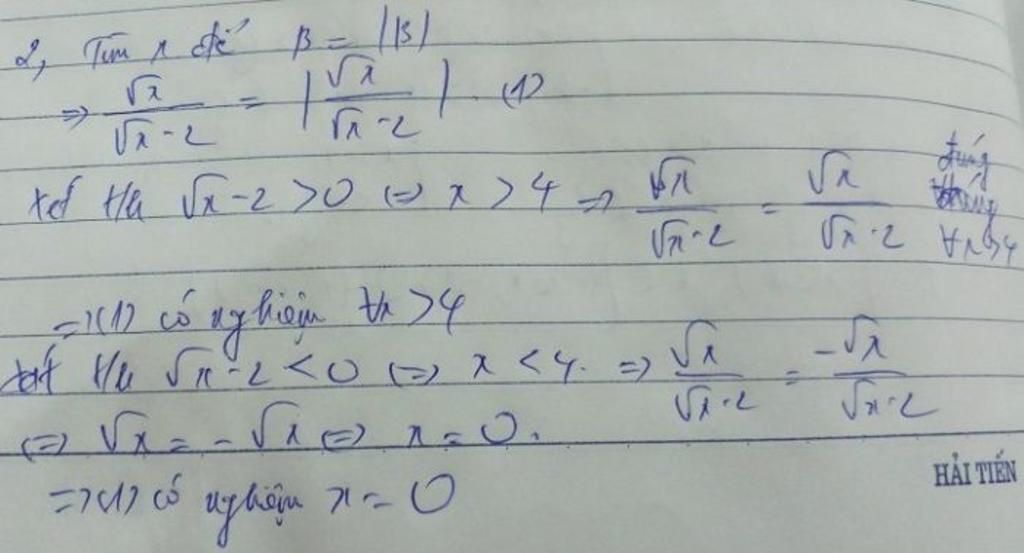 2, Tìm x để B = |B|
=> √x / (√x - 2) = | √x / (√x - 2) | (1)
xét TH √x - 2 > 0 <=> x > 4 => √x / (√x - 2) = √x / (√x - 2) đúng ∀x > 4
=> (1) có nghiệm ∀x > 4
xét TH √x - 2 < 0 <=> x < 4. => √x / (√x - 2) = -√x / (√x - 2)
<=> √x = - √x <=> x = 0.
HẢI TIẾN
=> (1) có nghiệm x = 0